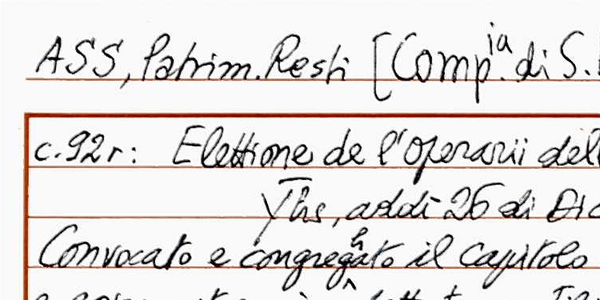 ASS, Patrim. Resti [Comp.ia di S.
c.92r: Elettione de l'operarii del
Yhs, addì 26 di
Convocato e congregato il capitolo